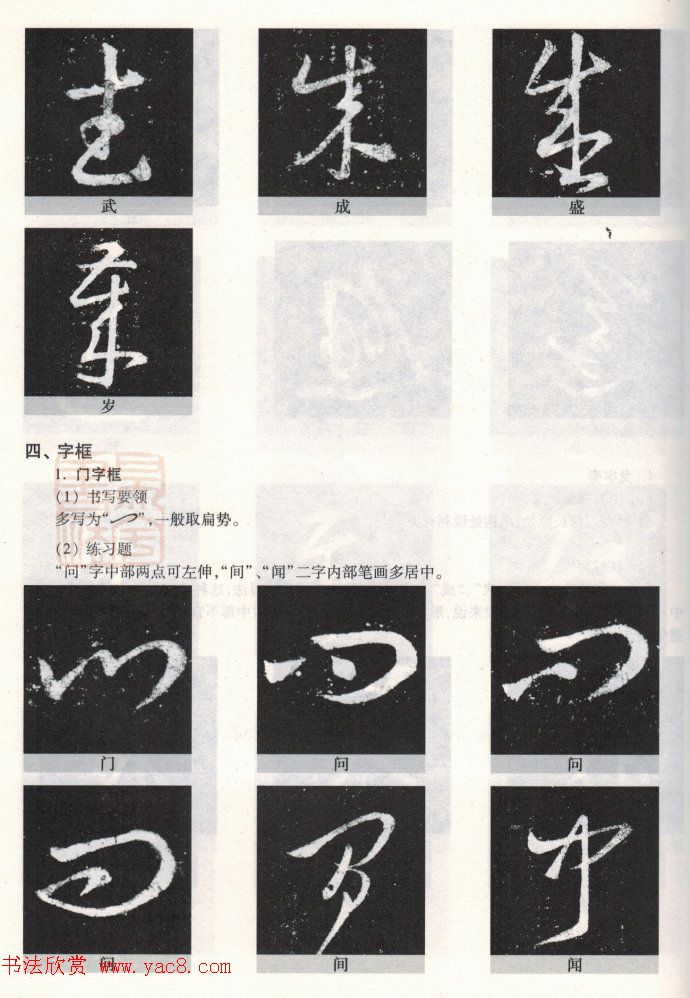 武 成 盛
岁
四、字框
1. 门字框
(1) 书写要领
多写为“ ”,一般取扁势。
(2) 练习题
“问”字中部两点可左伸,“间”、“闻”二字内部笔画多居中。
门 问 问
问 间 闻
书法欣赏 www.yac8.com